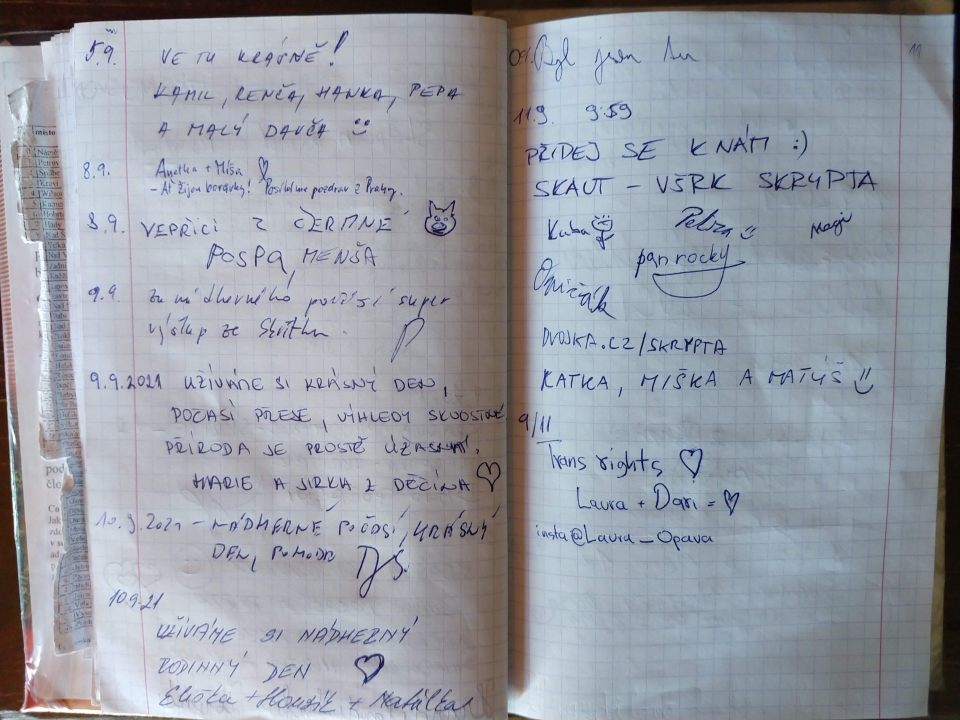 5.9. JE TU KRÁSNĚ!
KAMIL, RENČA, HANKA, PEPA
A MALÝ DAVČA
8.9. Anetka + Míša ♡
- Ať žijou borůvky! Posíláme pozdrav z Prahy.
8.9. VEPŘÍCI Z ČERMNÉ
POSPA, MENŠA
9.9. Za nádherného počasí super
výstup ze Skřítku.
9.9.2021 UŽÍVÁME SI KRÁSNÝ DEN,
POČASÍ PŘEJE, VÝHLEDY SKVOSTNÉ
PŘÍRODA JE PROSTĚ ÚŽASNÁ.
MARIE A JIRKA Z DĚČÍNA ♡
10.9.2021 - NÁDHERNÉ POČASÍ, KRÁSNÝ
DEN,
10.9.21
UŽÍVÁME SI NÁDHERNÝ
RODINNÝ DEN ♡
Eliška + Honzík + Natálka
Byl jsem tu
11
11.9. 9:59
PŘIDEJ SE K NÁM :)
SKAUT - VŠRK SKRYPTA
Kuba
pan rocky
DVOJKA.CZ/SKRYPTA
KATKA, MIŠKA A MATÚŠ
9/11
Trans rights ♡
Laura + Dari = ♡
insta@Laura_Opava